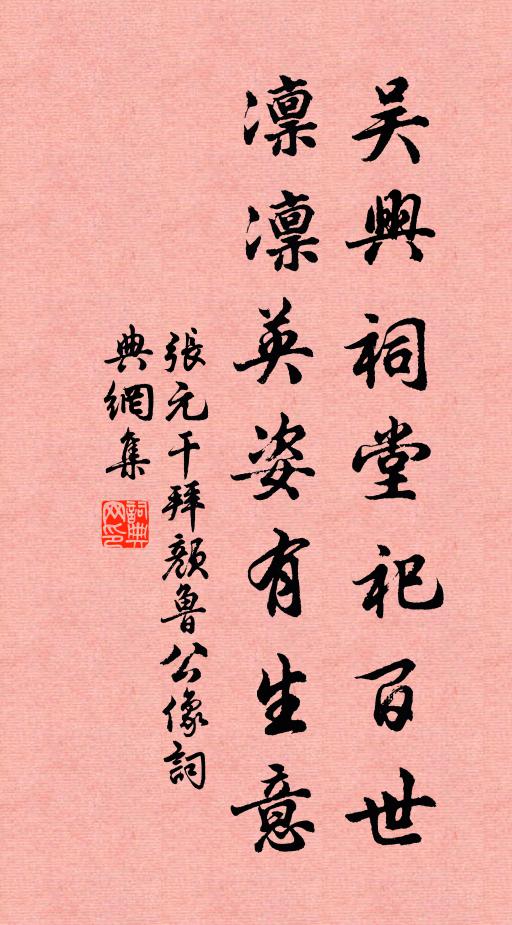 吴興祠堂祀百世
凛凛英姿有生意
張元干拜顏魯公像詞
典網集
詞典
网印